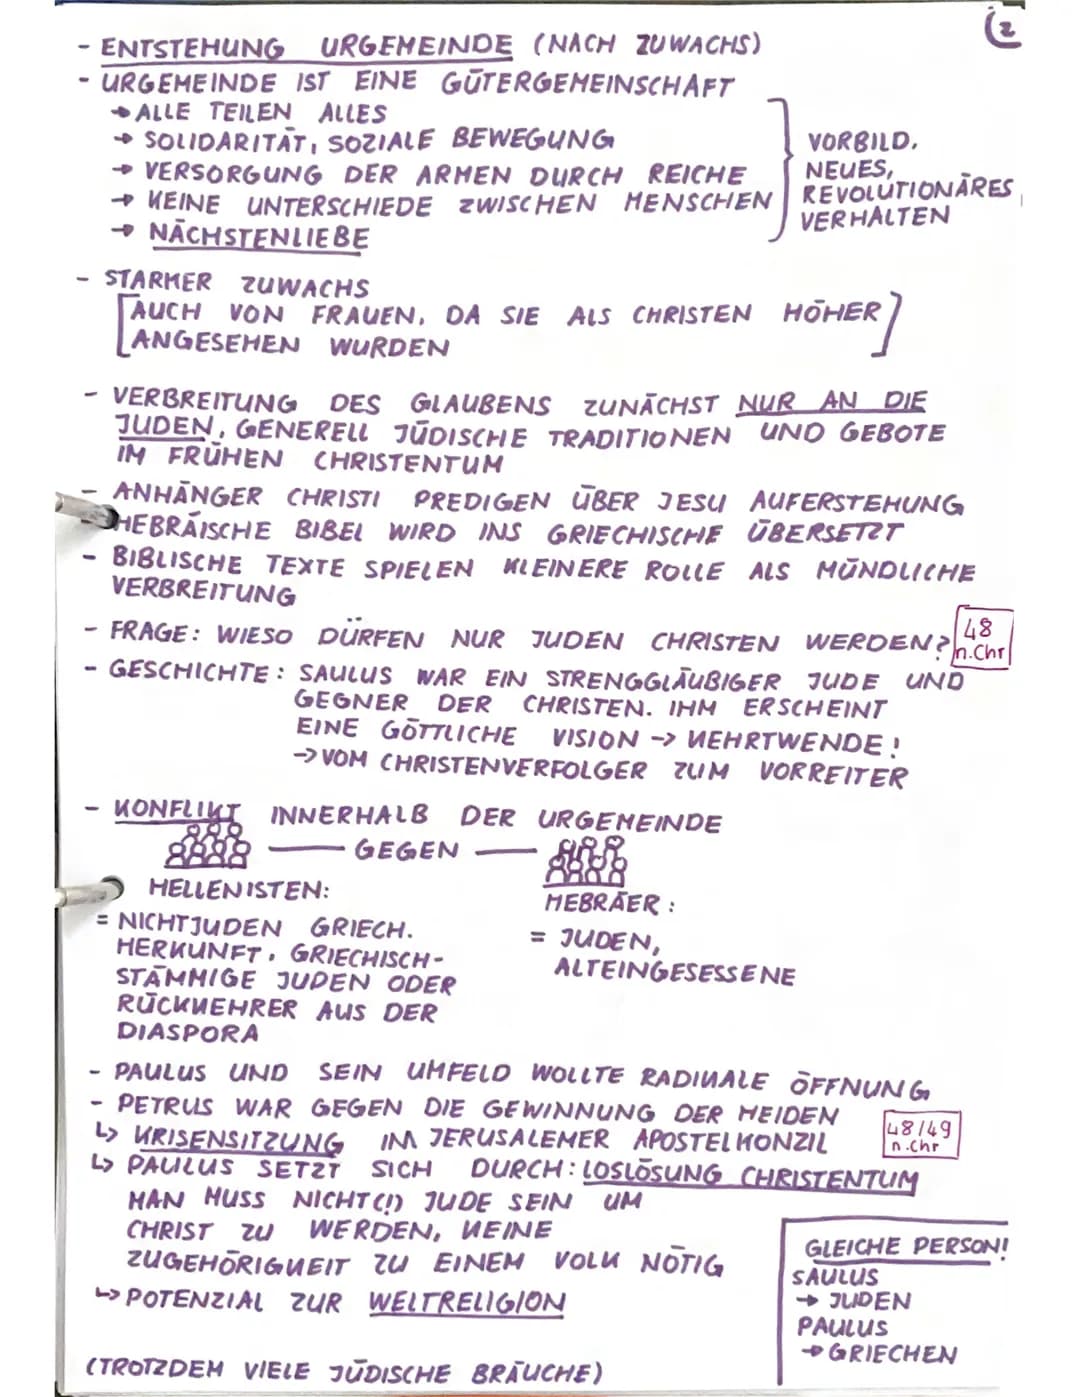 (2
- ENTSTEHUNG URGEMEINDE (NACH ZUWACHS)
- URGEMEINDE IST EINE GÜTERGEMEINSCHAFT
→ ALLE TEILEN ALLES
→ SOLIDARITÄT, SOZIALE BEWEGUNG
→ VERSORGUNG DER ARMEN DURCH REICHE
→ KEINE UNTERSCHIEDE ZWISCHEN MENSCHEN
→ NÄCHSTENLIEBE
VORBILD,
NEUES,
REVOLUTIONÄRES,
VERHALTEN
- STARKER ZUWACHS
[AUCH VON FRAUEN, DA SIE ALS CHRISTEN HÖHER
ANGESEHEN WURDEN]
- VERBREITUNG DES GLAUBENS ZUNÄCHST NUR AN DIE
JUDEN, GENERELL JÜDISCHE TRADITIONEN UND GEBOTE
IM FRÜHEN CHRISTENTUM
- ANHÄNGER CHRISTI PREDIGEN ÜBER JESU AUFERSTEHUNG
HEBRÄISCHE BIBEL WIRD INS GRIECHISCHE ÜBERSETZT
- BIBLISCHE TEXTE SPIELEN KLEINERE ROLLE ALS MÜNDLICHE
VERBREITUNG
- FRAGE: WIESO DÜRFEN NUR JUDEN CHRISTEN WERDEN?
48
n.Chr
- GESCHICHTE: SAULUS WAR EIN STRENGGLÄUBIGER JUDE UND
GEGNER DER CHRISTEN. IHM ERSCHEINT
EINE GÖTTLICHE VISION -> KEHRTWENDE!
-> VOM CHRISTENVERFOLGER ZUM VORREITER
- KONFLIKT INNERHALB DER URGEMEINDE
— GEGEN —
HELLENISTEN:
= NICHTJUDEN GRIECH.
HERKUNFT, GRIECHISCH-
STÄMMIGE JUDEN ODER
RÜCKKEHRER AUS DER
DIASPORA
HEBRÄER:
= JUDEN,
ALTEINGESESSENE
- PAULUS UND SEIN UMFELD WOLLTE RADIKALE ÖFFNUNG
- PETRUS WAR GEGEN DIE GEWINNUNG DER HEIDEN
↳ KRISENSITZUNG IM JERUSALEMER APOSTELKONZIL
48/49
n.Chr
↳ PAULUS SETZT SICH DURCH: LOSLÖSUNG CHRISTENTUM
MAN MUSS NICHT(!) JUDE SEIN UM
CHRIST ZU WERDEN, KEINE
ZUGEHÖRIGKEIT ZU EINEM VOLK NÖTIG
↳ POTENZIAL ZUR WELTRELIGION
(TROTZDEM VIELE JÜDISCHE BRÄUCHE)
GLEICHE PERSON!
SAULUS
→ JUDEN
PAULUS
→ GRIECHEN